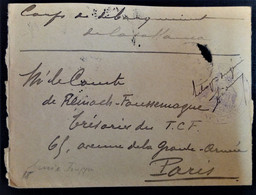 Corps de débarquement
de Casablanca
Mr le Comte
de Reinach-Foussemagne
Trésorier du T.C.F
65, avenue de la Grande-Armée
Paris